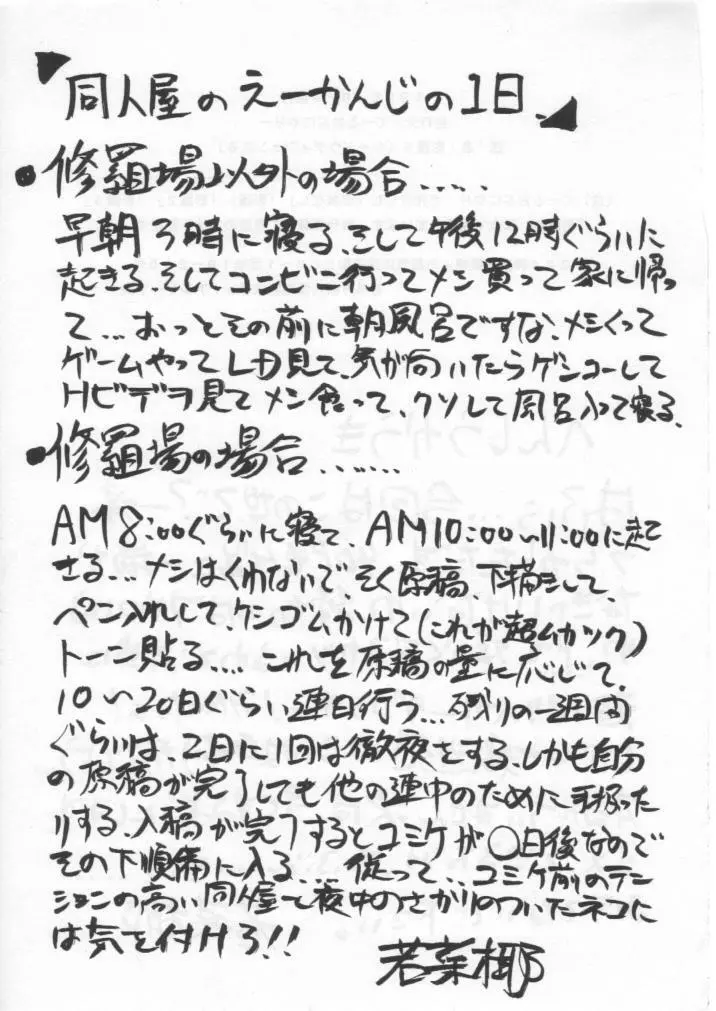 同人屋のえーかんじの1日
●修羅場以外の場合.....
早朝3時に寝る、そして午後12時ぐらいに
起きる、そしてコンビニ行ってメシ買って家に帰っ
て...おっとその前に朝風呂ですな、メシくって
ゲームやってLD見て、気が向いたらゲンコーして
Hビデヲ見てメシ食って、クソして風呂入って寝る、
●修羅場の場合.......
AM8:00ぐらいに寝て、AM10:00〜11:00に起
きる...メシはくわないでそく原稿、下描きして、
ペン入れして、ケシゴムかけて(これが超ムカツク)
トーン貼る....これを原稿の量に応じて、
10〜20日ぐらい連日行う...残りの一週間
ぐらいは、2日に1回は徹夜をする、しかも自分
の原稿が完了しても他の連中のために手伝った
りする、入稿が完了するとコミケが〇日後なので
その下準備に入る....従って...コミケ前のテン
ションの高い同人屋と夜中のさかりのついたネコに
は気を付けろ!!
若菜椰